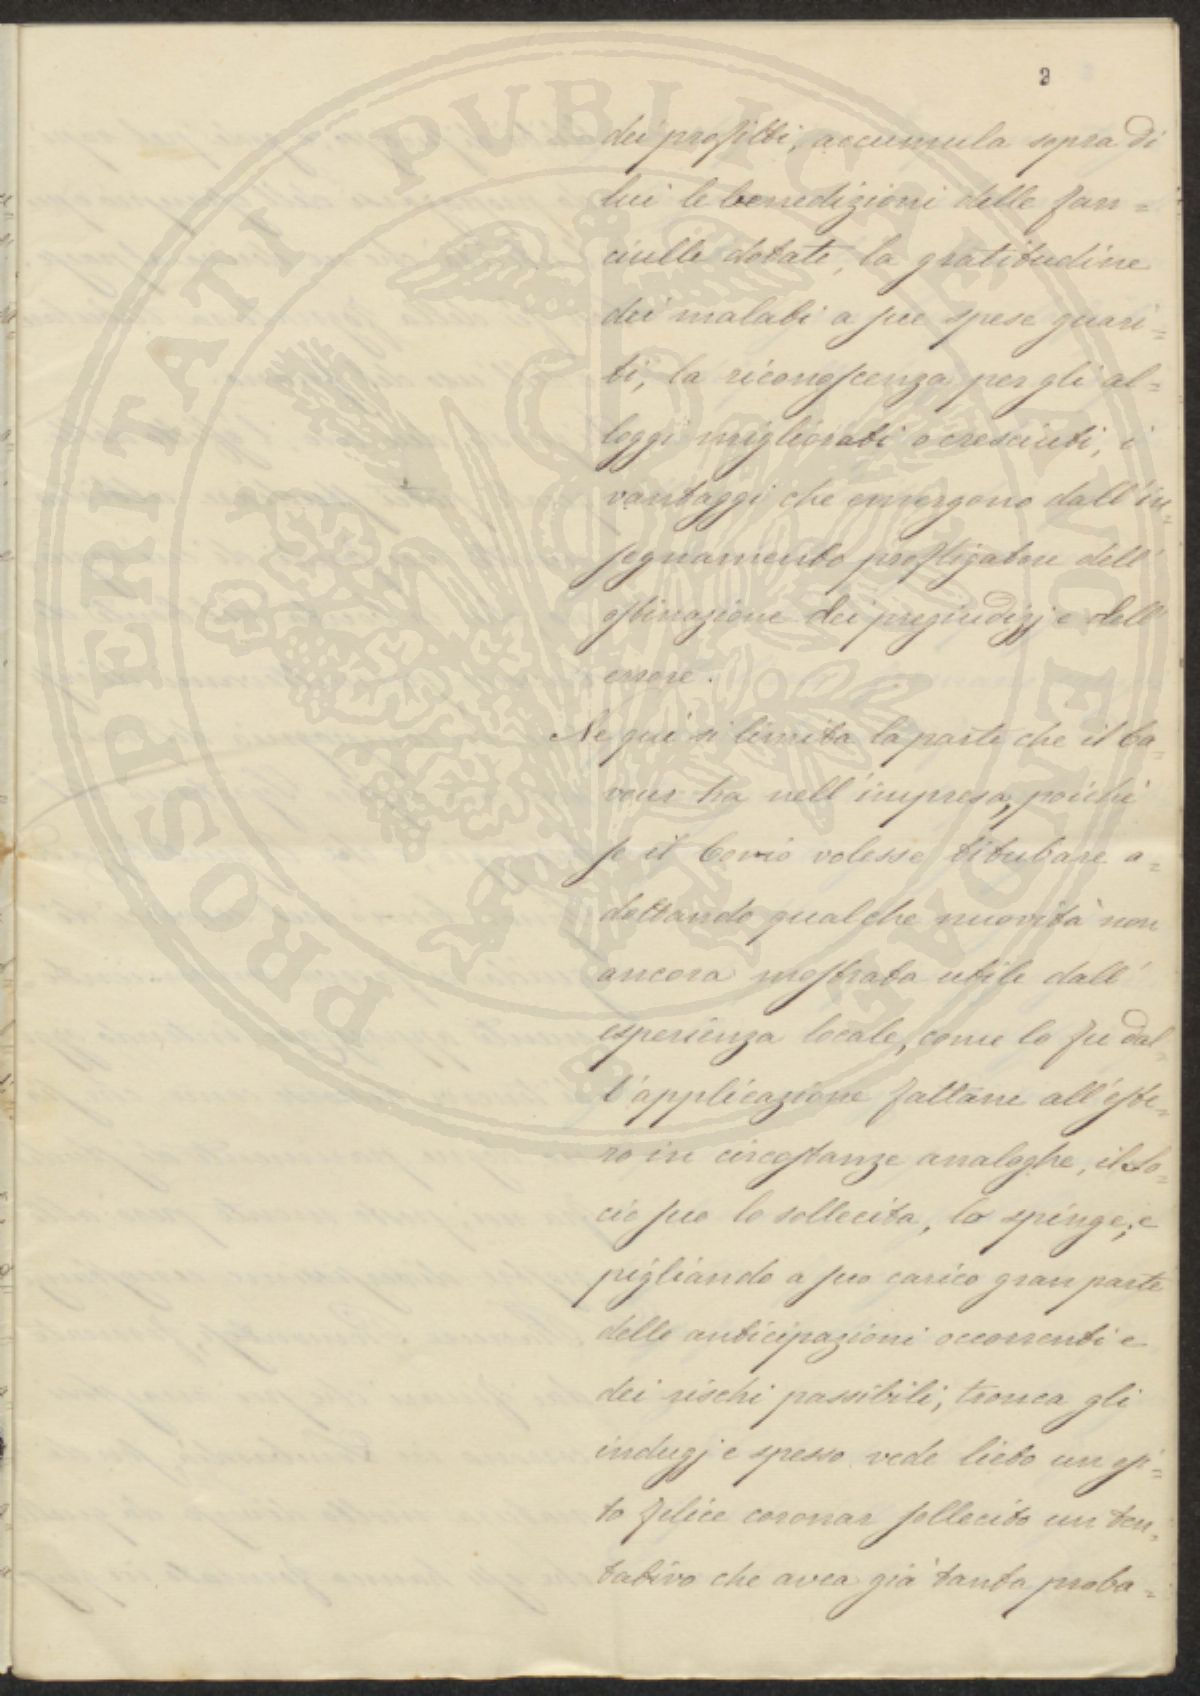 3
dei profitti, accumula sopra di
lui le benedizioni delle fan=
ciulle dotate, la gratitudine
dei malati a sue spese guari=
ti, la riconoscenza per gli al=
loggi migliorati o cresciuti, i
vantaggi che emergono dall'in=
segnamento prostigatore dell'
ostinazione dei pregiudizj e dell'
errore.
Ne qui si limita la parte che il Ca=
vour ha nell'impresa, poichè
se il Corio volesse titubare a=
dottando qualche nuovità non
ancora mostrata utile dall'
esperienza locale, come lo fu dal=
l'applicazione fattane all'este=
ro in circostanze analoghe, il So=
cio suo lo sollecita, lo spinge, e
pigliando a suo carico gran parte
delle anticipazioni occorrenti e
dei rischi possibili, tronca gli
indugj e spesso vede lieto un esi=
to felice coronar sollecito un ten=
tativo che avea già tanta proba=
PROSPERITATI PUBLICAE AUGENDAE